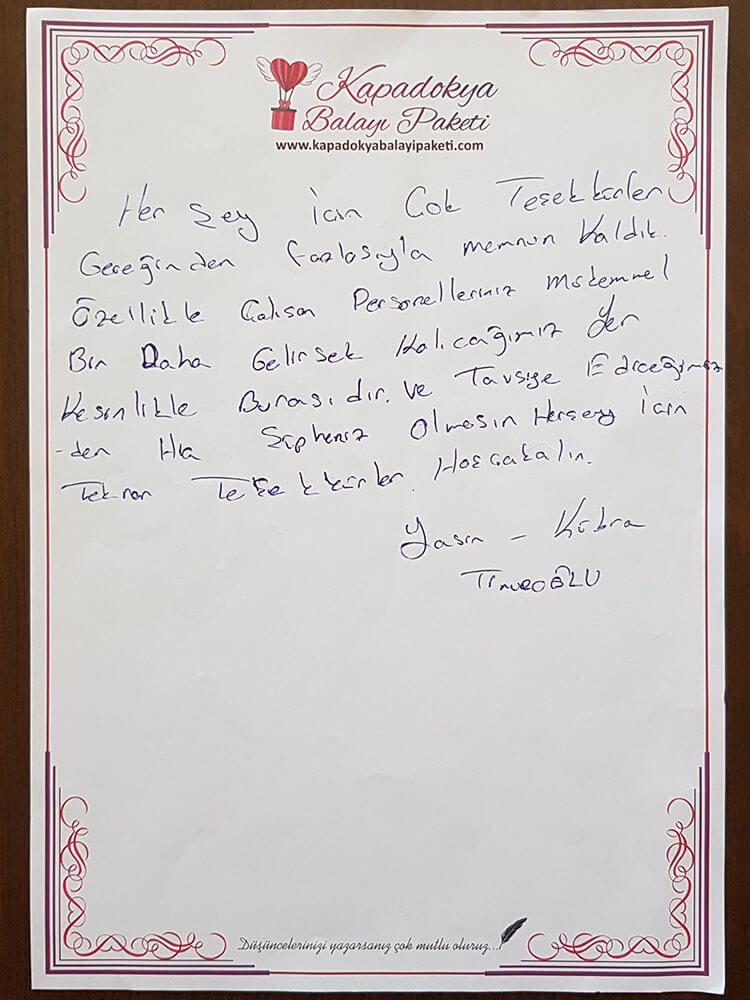 Kapadokya
Balayı Paketi
www.kapadokyabalayipaketi.com
Her Şey İçin Çok Teşekkürler
Gereğinden fazlasıyla memnun kaldık.
Özellikle Çalışan Personelleriniz mükemmel
Bir Daha Gelirsek Kalıcağımız Yer
Kesinlikle Burasıdır. Ve Tavsiye Ediceğimiz
-den Hiç Şüpheniz Olmasın Herşey İçin
Tekrar Teşekkürler. Hoşçakalın.
Yasin - Kübra
TİMUROĞLU
Düşüncelerinizi yazarsanız çok mutlu oluruz...